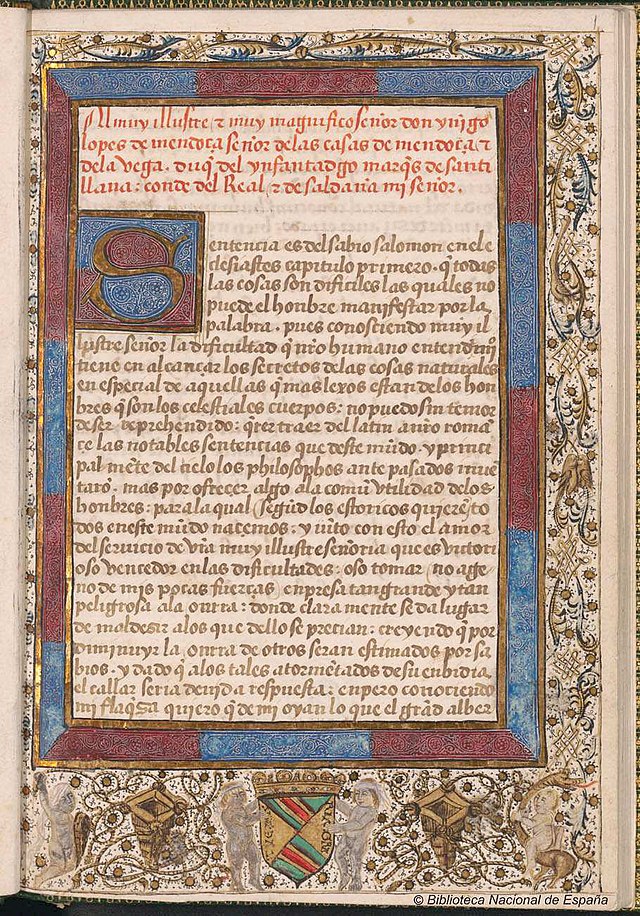 Al muy illustre ⁊ muy magnifico señor don yñigo
lopes de mendoça señor delas casas de mendoça ⁊
dela vega . duq̃ del ynfantadgo marq̃s de santi
llana : conde del Real ⁊ de saldaña mi señor .
Sentencia es del sabio salomon en el e
clesiastes capitulo primero . q̃ todas
las cosas son dificiles las quales no
puede el honbre manifestar por la
palabra . pues conosciendo muy il
lustre señor la dificultad q̃ nr̃o humano entendimi
tiene en alcançar los secretos delas cosas naturales
en especial de aquellas q̃ mas lexos estan delos hon
bres q̃ son los celestiales cuerpos : no puedo sin temor
de ser reprehendido : q̃rer traer del latin en nr̃o romã
ce las notables sentencias que deste mũdo . y princi
pal mẽte del cielo los philosophos ante pasados inuẽ
tarõ . mas por ofrecer algo ala comũ vtilidad delos
honbres : para la qual (segũd los estoricos quierẽ) to
dos en este mũdo naçemos : y vñto con esto el amor
del seruicio de vr̃a muy illustre señoria que es vitori
oso vencedor en las dificultades : oso tomar (no age
no de mis pocas fuerças) enpresa tan grande y tan
peligrosa ala onrra : donde clara mente se da lugar
de maldezir alos que dello se precian : creyendo q̃ por
diminuyr la onrra de otros seran estimados por sa
bios . y dado q̃ alos tales atormẽtados de su enbidia
el callar seria deuida respuesta : enpero conociendo
mi flaq̃za quiero q̃ de mi oyan lo que el grãd alber
© Biblioteca Nacional de España